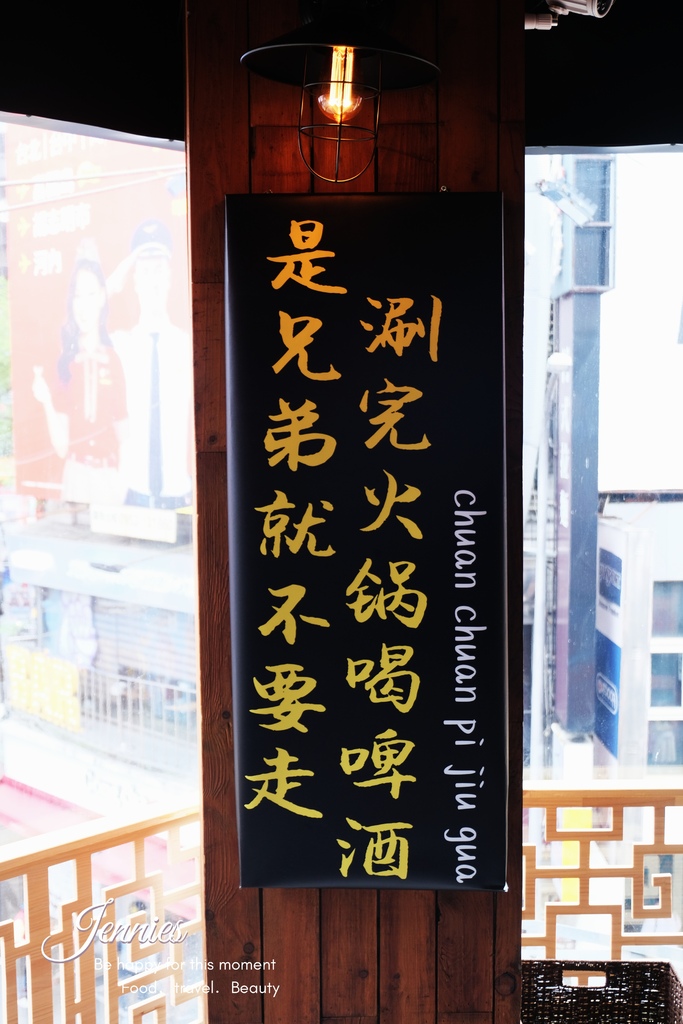 涮完火锅喝啤酒
是兄弟就不要走
chuan chuan pi jiu gua
Jennies
Be happy for this moment
Food. travel. Beauty